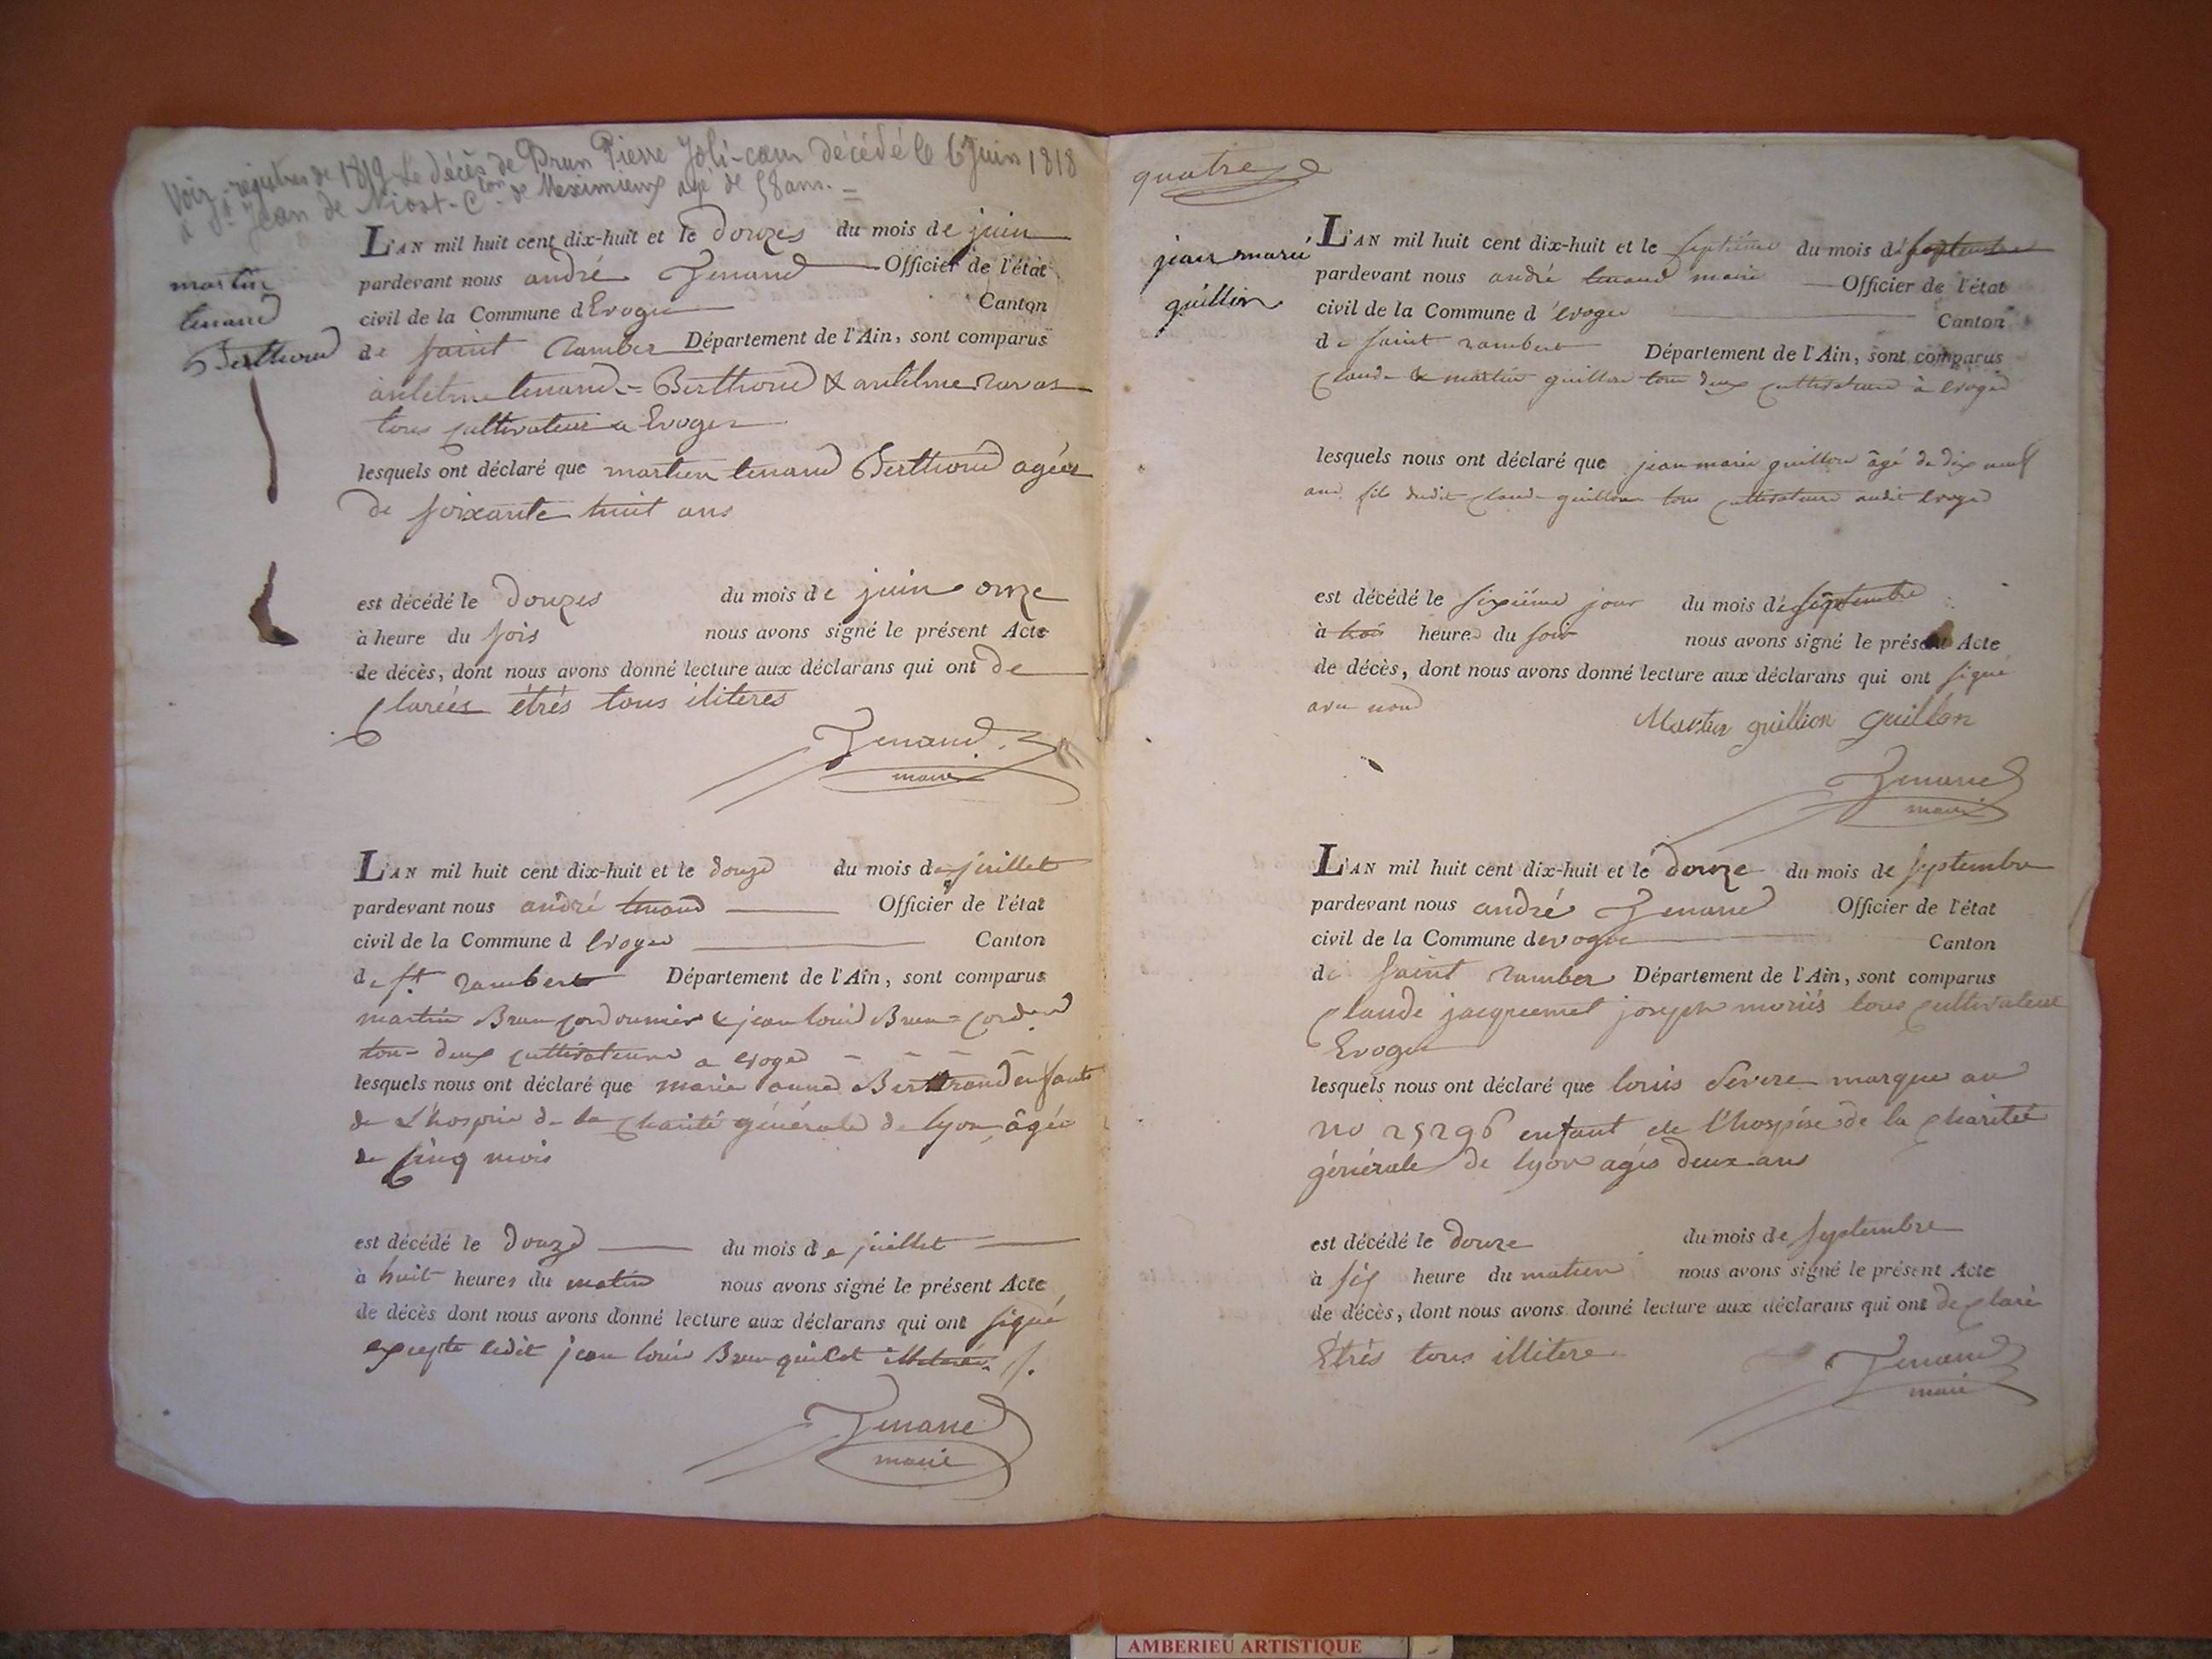 Voir registres de 1819 Le décès de Brun Pierre Joli-cœur décédé le 6 Juin 1818
à St Jean de Niost - Cton de Meximieux agé de 58 ans. =
martin
tenand
Berthond
L'AN mil huit cent dix-huit et le douzes du mois de juin
pardevant nous andré Tenand Officier de l'état
civil de la Commune d Evoges Canton
de saint Ramber Département de l'Ain, sont comparus
antelme tenand = Berthond & antelme ravas
tous cultivateur a Evoges
lesquels ont déclaré que martien tenand Berthond agées
de soixante huit ans
est décédé le douzes du mois de juin onze
à heure du sois nous avons signé le présent Acte
de décès, dont nous avons donné lecture aux déclarans qui ont de
clarées êtrés tous iliteres
Tenand
maire
L'AN mil huit cent dix-huit et le douze du mois de juillet
pardevant nous andré tenand Officier de l'état
civil de la Commune d Evoges Canton
de St. rambert Département de l'Ain, sont comparus
martin Brun cordonnier & jean louis Brun =
tous deux cultivateurs a evoges
lesquels nous ont déclaré que marie anne Bertrand enfant
de L'hospice de la charité générale de lyon, âgée
de cinq mois
est décédé le douze du mois de juillet
à huit heures du matin nous avons signé le présent Acte
de décès dont nous avons donné lecture aux déclarans qui ont signé
excepte ledit jean louis Brun qui est
Tenand
maire
quatre
jean marie
guillon
L'AN mil huit cent dix-huit et le septième du mois de septembre
pardevant nous andré tenand maire Officier de l'état
civil de la Commune d'évoges Canton
de saint rambert Département de l'Ain, sont comparus
claude & martin guillon tous deux cultivateurs à evoges
lesquels nous ont déclaré que jean marie guillon âgé de dix neuf
ans fils dudit claude guillon tous cultivateurs audit evoges
est décédé le sixième jour du mois de septembre
à trois heures du soir nous avons signé le présent Acte
de décès, dont nous avons donné lecture aux déclarans qui ont signé
avec nous
Martin guillion guillon
Tenand
maire
L'AN mil huit cent dix-huit et le douze du mois de septembre
pardevant nous andré Tenand Officier de l'état
civil de la Commune devoges Canton
de saint ramber Département de l'Ain, sont comparus
claude jacquemet joseph moriés tous cultivateur
Evoges
lesquels nous ont déclaré que louis Severe marque au
no 25296 enfant de l'hospise de la charitet
générale de lyon agés deux ans
est décédé le douze du mois de septembre
à six heure du matien nous avons signé le présent Acte
de décès, dont nous avons donné lecture aux déclarans qui ont declaré
Etrés tous illitere
Tenand
maire
AMBERIEU ARTISTIQUE